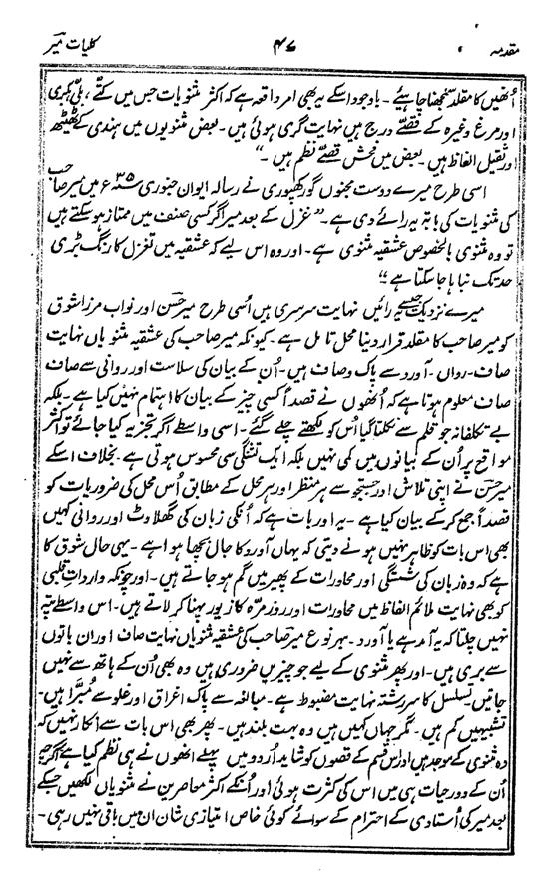 مقدمہ ۴۷ کلیات میر
اُنھیں کا مقلد سمجھنا چاہیئے ۔ باوجود اسکے یہ بھی امر واقعہ ہے کہ اکثر مثنویات جس میں کتّے، بلّی بکری
اور مرغ وغیرہ کے قصّے درج ہیں نہایت گری ہوئی ہیں۔ بعض مثنویوں میں ہندی کے ٹھیٹھ
اور ثقیل الفاظ ہیں ۔ بعض میں فحش قصّے نظم ہیں ۔“
اسی طرح میرے دوست مجنوں گورکھپوری نے رسالہ ایوان جنوری ۳۵ء میں میر صاحب
کی مثنویات کی بابتہ یہ رائے دی ہے ۔ ”غزل کے بعد میر اگر کسی صنف میں ممتاز ہوسکتے ہیں
تو وہ مثنوی بالخصوص عشقیہ مثنوی ہے ۔ اور وہ اس لیے کہ عشقیہ میں تغزل کا رنگ بڑی
حد تک نبا ہا جاسکتا ہے“
میرے نزدیک جیسے یہ رائیں نہایت سرسری ہیں اُسی طرح میر حسن اور نواب مرزا شوق
کو میر صاحب کا مقلد قرار دینا محل تامل ہے ۔ کیونکہ میر صاحب کی عشقیہ مثنویاں نہایت
صاف ۔ رواں ۔ آورد سے پاک و صاف ہیں ۔ اُن کے بیان کی سلاست اور روانی سے صاف
صاف معلوم ہوتا ہے کہ اُنھوں نے قصداً کسی چیز کے بیان کا اہتمام نہیں کیا ہے ۔ بلکہ
بے تکلفانہ جو قلم سے نکلتا گیا اُس کو لکھتے چلے گئے ۔ اسی واسطے اگر تجزیہ کیا جائے تو اکثر
مواقع پر اُن کے بیانوں میں کمی نہیں بلکہ ایک تشنگی سی محسوس ہوتی ہے ۔ بخلاف اسکے
میر حسن نے اپنی تلاش اور جستجو سے ہر منظر اور ہر محل کے مطابق اُس محل کی ضروریات کو
قصداً جمع کرکے بیان کیا ہے ۔ یہ اور بات ہے کہ اُنکی زبان کی گھلاوٹ اور روانی کہیں
بھی اس بات کو ظاہر نہیں ہونے دیتی کہ یہاں آورد کا جال بچھا ہوا ہے ۔ یہی حال شوق کا
ہے کہ وہ زبان کی شستگی اور محاورات کے پھیر میں گم ہو جاتے ہیں ۔ اور چونکہ واردات قلبی
کو بھی نہایت ملائم الفاظ میں محاورات اور روزمرّہ کا زیور پہنا کر لاتے ہیں ۔ اس واسطے پتہ
نہیں چلتا کہ یہ آمد ہے یا آورد ۔ بہر نوع میر صاحب کی عشقیہ مثنویاں نہایت صاف اور ان باتوں
سے بری ہیں ۔ اور پھر مثنوی کے لیے جو چیزیں ضروری ہیں وہ بھی اُن کے ہاتھ سے نہیں
جاتیں ۔ تسلسل کا سررشتہ نہایت مضبوط ہے ۔ مبالغہ سے پاک اغراق اور غلو سے مُبرّا ہیں ۔
تشبیہیں کم ہیں ۔ مگر جہاں کہیں ہیں وہ بہت بلند ہیں ۔ پھر بھی اس بات سے انکار نہیں کہ
وہ مثنوی کے موجد ہیں اور اس قسم کے قصوں کو شاید اُردو میں پہلے انھوں نے ہی نظم کیا ہے اگرچہ
اُن کے دور حیات ہی میں اس کی کثرت ہوئی اور اُنکے اکثر معاصرین نے مثنویاں لکھیں جسکے
بعد میر کی اُستادی کے احترام کے سوائے کوئی خاص امتیازی شان ان میں باقی نہیں رہی ۔